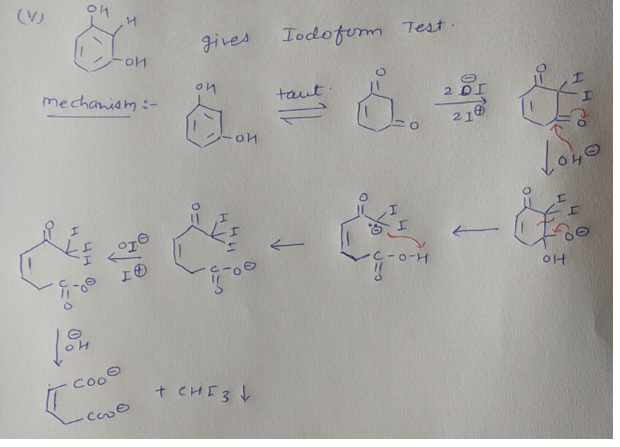 (V) OH H OH gives Iodoform Test.
mechanism :- OH OH taut. O O 2 OI⊖ 2I⊕ O I I O
OH⊖
O I I I C-O⊖ O OI⊖ I⊕ O I I I C-O⊖ O O I I ⊖ C-O-H O O I I O⊖ OH
⊖OH
COO⊖ COO⊖ + CHI3 ↓